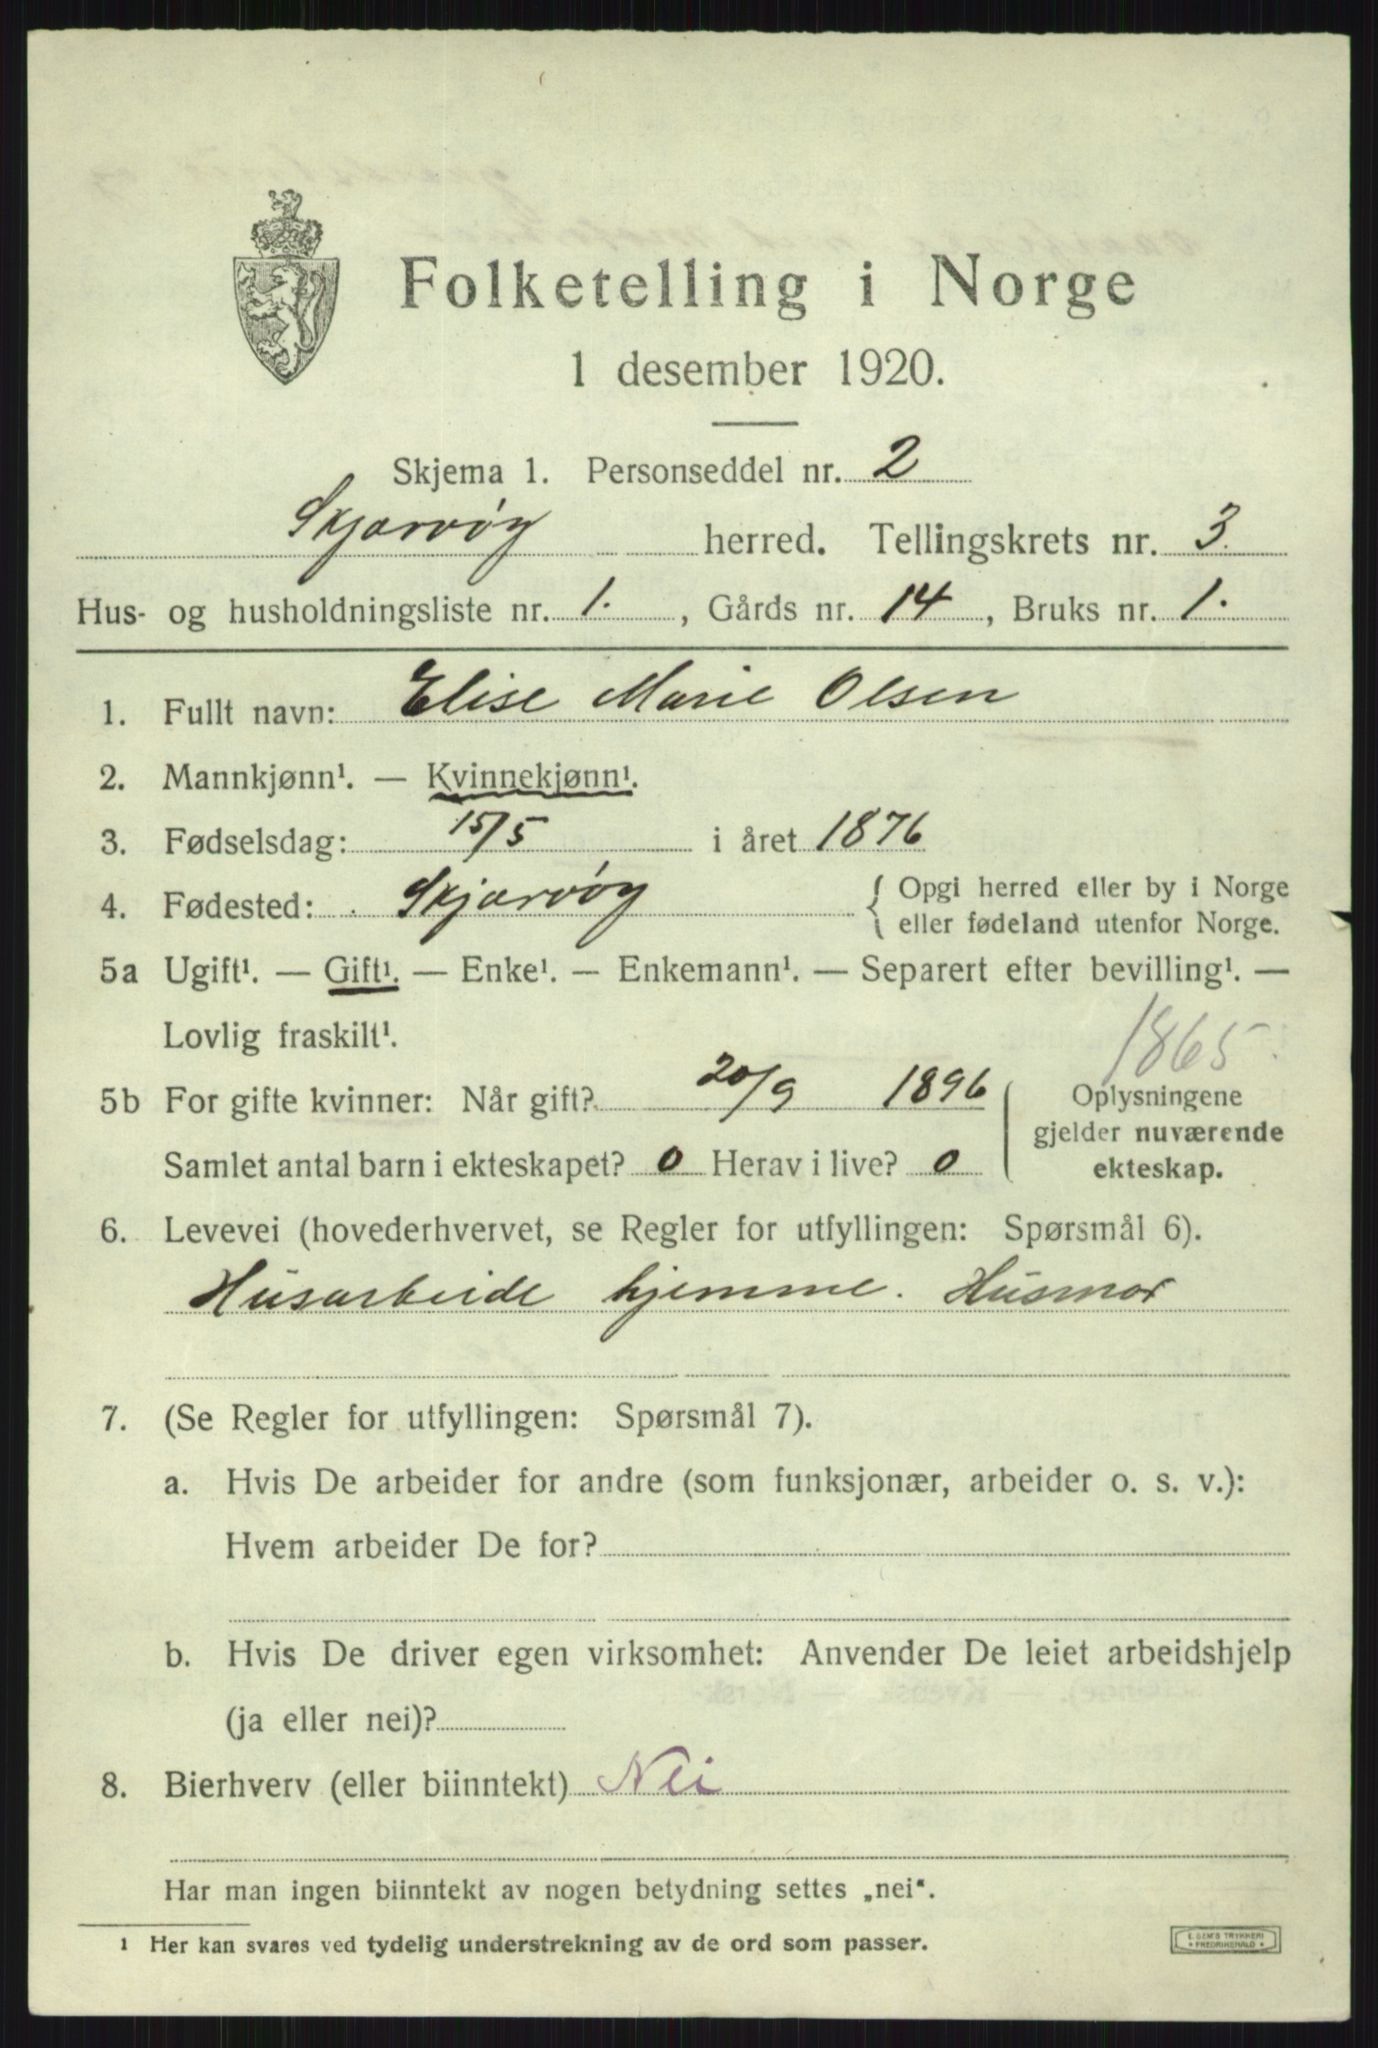 Folketelling i Norge
1 desember 1920.
Skjema 1. Personseddel nr. 2
Skjærvøy herred. Tellingskrets nr. 3.
Hus- og husholdningsliste nr. 1. , Gårds nr. 14 , Bruks nr. 1.
1. Fullt navn: Elise Marie Olsen
2. Mannkjønn¹. — Kvinnekjønn¹.
3. Fødselsdag: 15/5 i året 1876
4. Fødested: Skjærvøy { Opgi herred eller by i Norge
eller fødeland utenfor Norge.
5a Ugift¹. — Gift¹. — Enke¹. — Enkemann¹. — Separert efter bevilling¹. —
Lovlig fraskilt¹.
1865
5b For gifte kvinner: Når gift? 20/9 1896
Samlet antal barn i ekteskapet? 0 Herav i live? 0
Oplysningene
gjelder nuværende
ekteskap.
6. Levevei (hovederhvervet, se Regler for utfyllingen: Spørsmål 6).
Husarbeide hjemme. Husmor
7. (Se Regler for utfyllingen: Spørsmål 7).
a. Hvis De arbeider for andre (som funksjonær, arbeider o. s. v.):
Hvem arbeider De for?
b. Hvis De driver egen virksomhet: Anvender De leiet arbeidshjelp
(ja eller nei)?
8. Bierhverv (eller biinntekt) Nei
Har man ingen biinntekt av nogen betydning settes „nei“.
1 Her kan svares ved tydelig understrekning av de ord som passer.
E. SEM'S TRYKKERI
• FREDRIKSHALD •